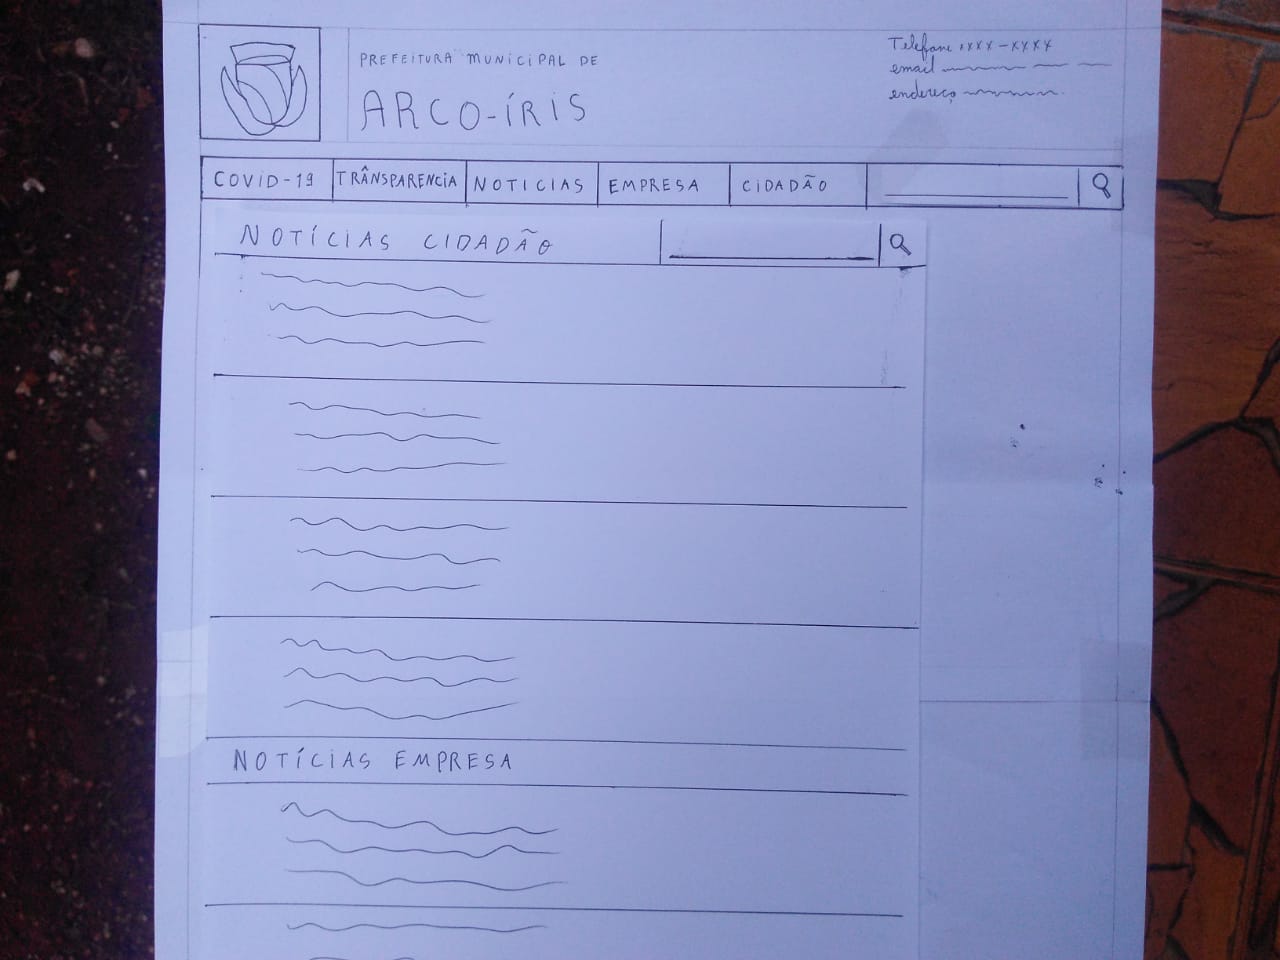 PREFEITURA MUNICIPAL DE
ARCO-ÍRIS
Telefone xxxx-xxxx
email
endereço
COVID-19 TRÂNSPARENCIA NOTICIAS EMPRESA CIDADÃO
NOTÍCIAS CIDADÃO
NOTÍCIAS EMPRESA